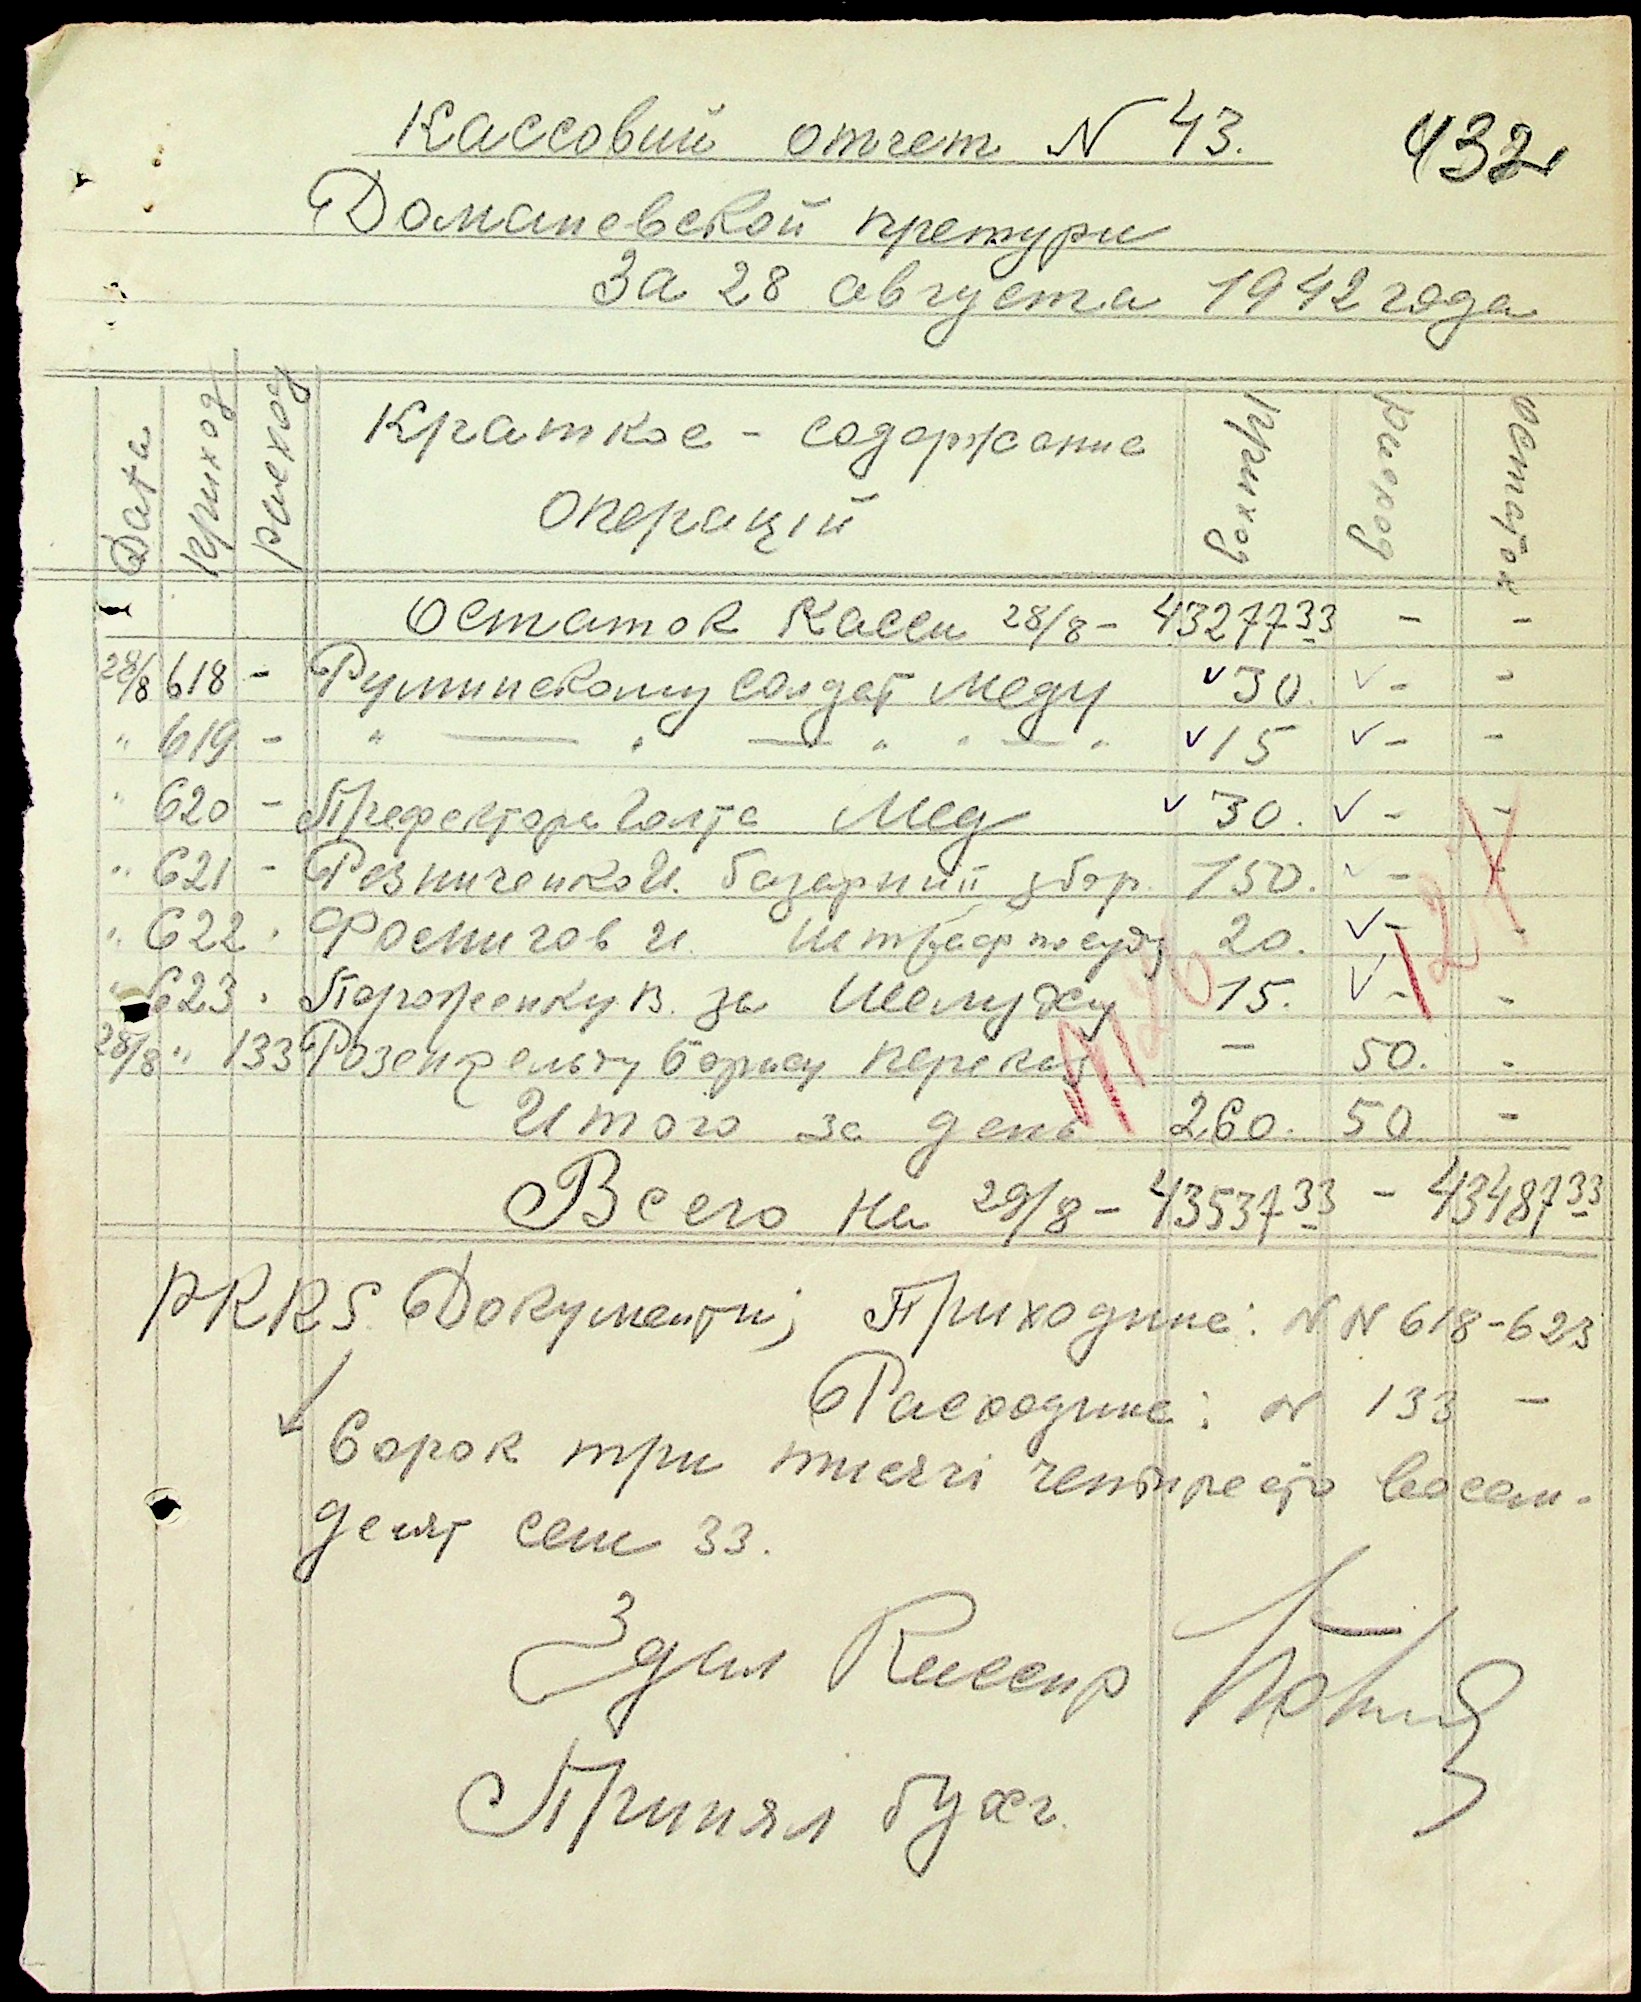 Кассовий отчет N 43. 432
Доманевской претури
За 28 августа 1942 года
Data приход расход Краткое - содержание приход расход остаток
операцій
Остаток Касси 28/8 - 43277 33 - -
28/8 618 - Руминскому солдат меду 30. - -
" 619 - " — " — " " — " 15 - -
" 620 - Префектора Голта Мед 30. - -
" 621 - Резниченко И. базарний збор. 150. - -
" 622 - И. Штраф 20. - -
" 623 - В. за 15. - -
28/8 " 133 Розенфельту Борису - 50. -
Итого за день 260. 50 -
Всего на 29/8 - 43537 33 - 43487 33
PKKS Документи; Приходние: N N 618-623
Расходние: N 133 -
Сорок три тисячі четиресто восем-
десят сем 33.
Здал Кассир
Принял бухг.